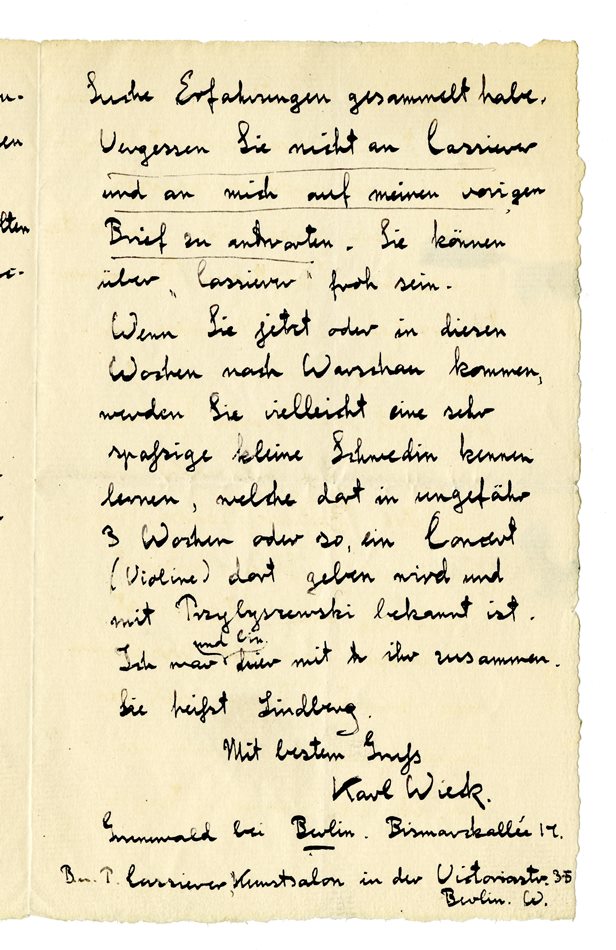 Suche Erfahrungen gesammelt habe.
Vergessen Sie nicht an Cassierer
und an mich auf meinen vorigen
Brief zu antworten. Sie können
über „Cassierer“ froh sein.
Wenn Sie jetzt oder in diesen
Wochen nach Warschau kommen,
werden Sie vielleicht eine sehr
spaßige kleine Schwedin kennen
lernen, welche dort in ungefähr
3 Wochen oder so, ein Concert
(Violine) dort geben wird und
mit Przybyszewski bekannt ist.
und bin
Ich war hier mit ihr zusammen.
Sie heißt Lindberg.
Mit bestem Gruß
Karl Wieck.
Grunewald bei Berlin. Bismarckallée 17.
B. u. P. Cassierer, Kunstsalon in der Victoriastr. 35
Berlin. W.